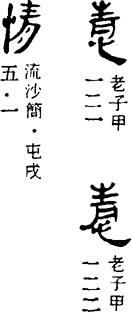 老子甲
一二一
老子甲
一二二
流沙簡·屯戌
五·一